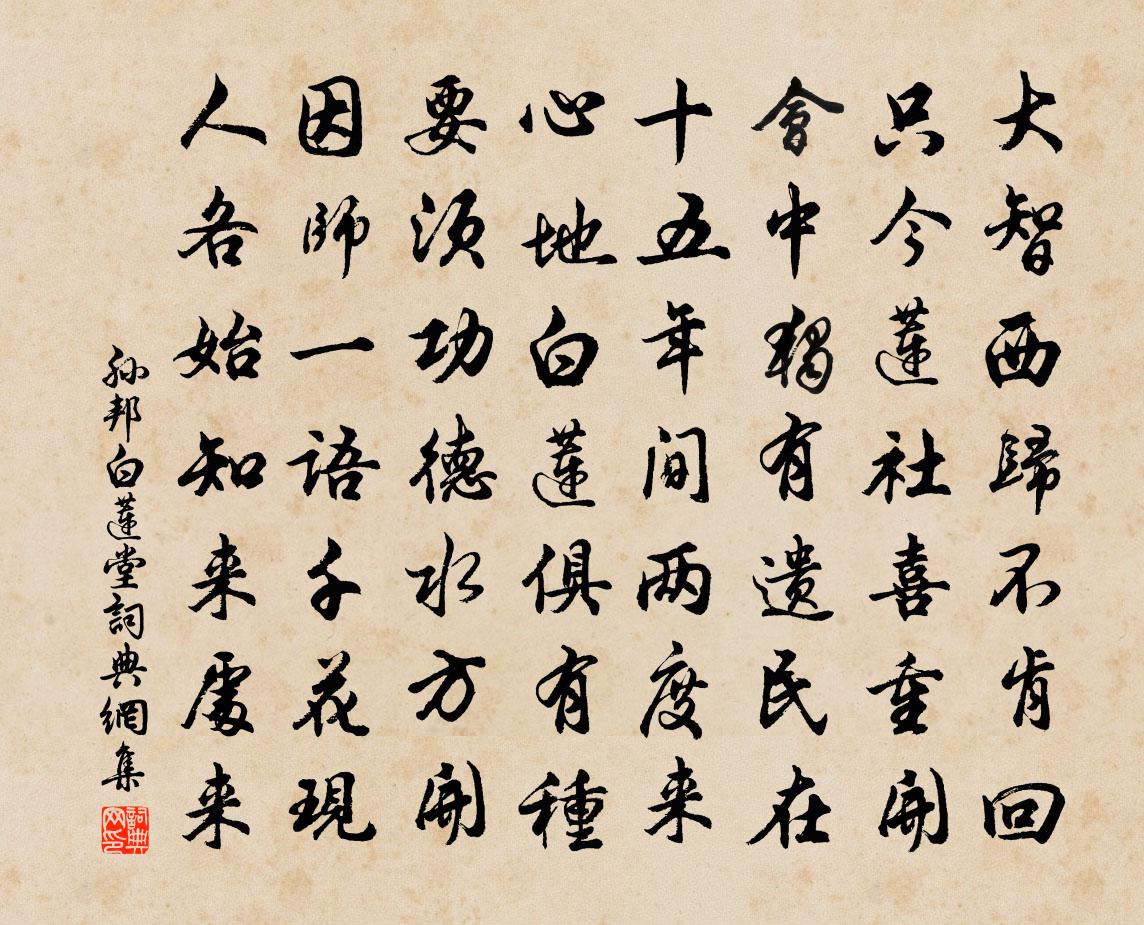 大智西歸不肯回
只今蓮社喜重開
會中獨有遺民在
十五年間兩度来
心地白蓮俱有種
要須功德水方開
因師一語千花現
人各始知来處来
孫邦白蓮堂詞典網集
詞典网印